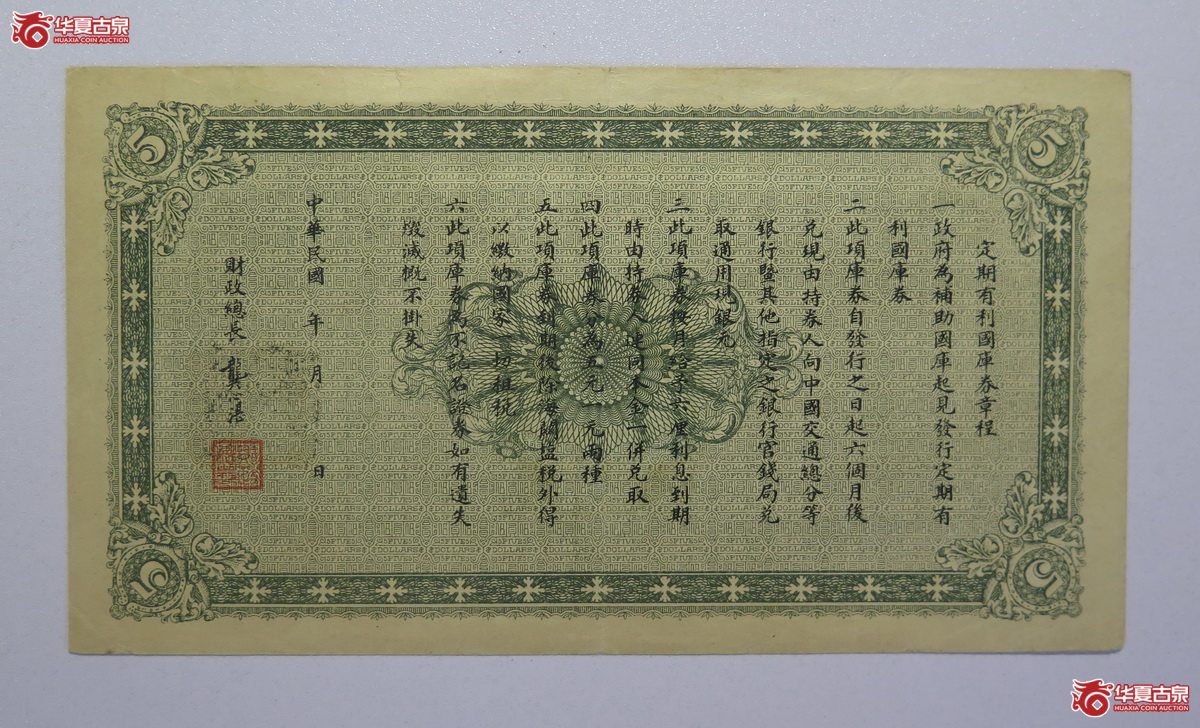 华夏古泉
HUAXIA COIN AUCTION
5
5
定期有利國庫券章程
一政府為補助國庫起見發行定期有
利國庫券
二此項庫券自發行之日起六個月後
兌現由持券人向中國交通總分等
銀行暨其他指定之銀行官錢局兌
取通用現銀元
三此項庫券每月給予六厘利息到期
時由持券人連同本金一併兌取
四此項庫券分為五元一元兩種
五此項庫券到期後除海關鹽稅外得
以繳納國家一切租稅
六此項庫券為不記名證券如有遺失
燬滅概不掛失
中華民國 年 月 日
財政總長 龔心湛
5
5
华夏古泉
HUAXIA COIN AUCTION